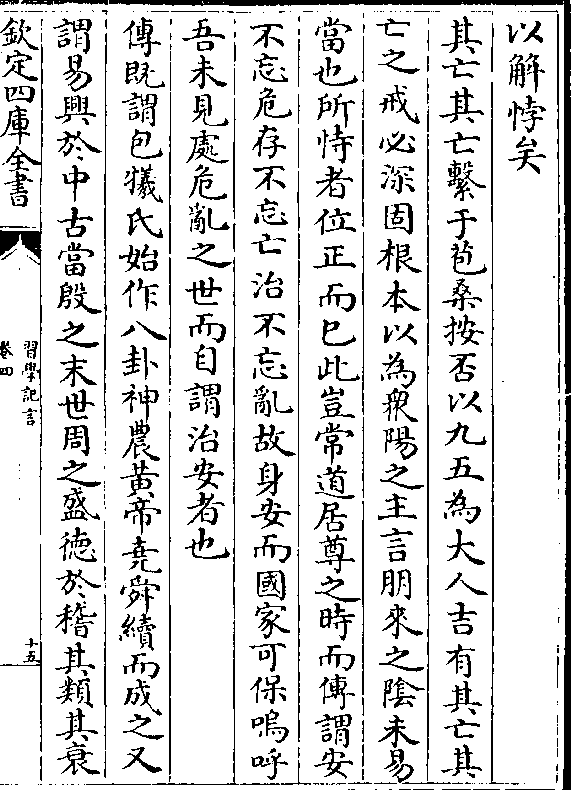 以解悖矣
其亡其亡繫于苞桑按否以九五為大人吉有其亡其
亡之戒必深固根本以為衆陽之主言朋來之陰未易
當也所恃者位正而已此豈常道居尊之時而傳謂安
不忘危存不忘亡治不忘亂故身安而國家可保嗚呼
吾未見處危亂之世而自謂治安者也
傳既謂包犧氏始作八卦神農黃帝堯舜續而成之又
謂易興於中古當殷之末世周之盛徳於稽其類其衰
欽定四庫全書
習學記言
卷四
十五